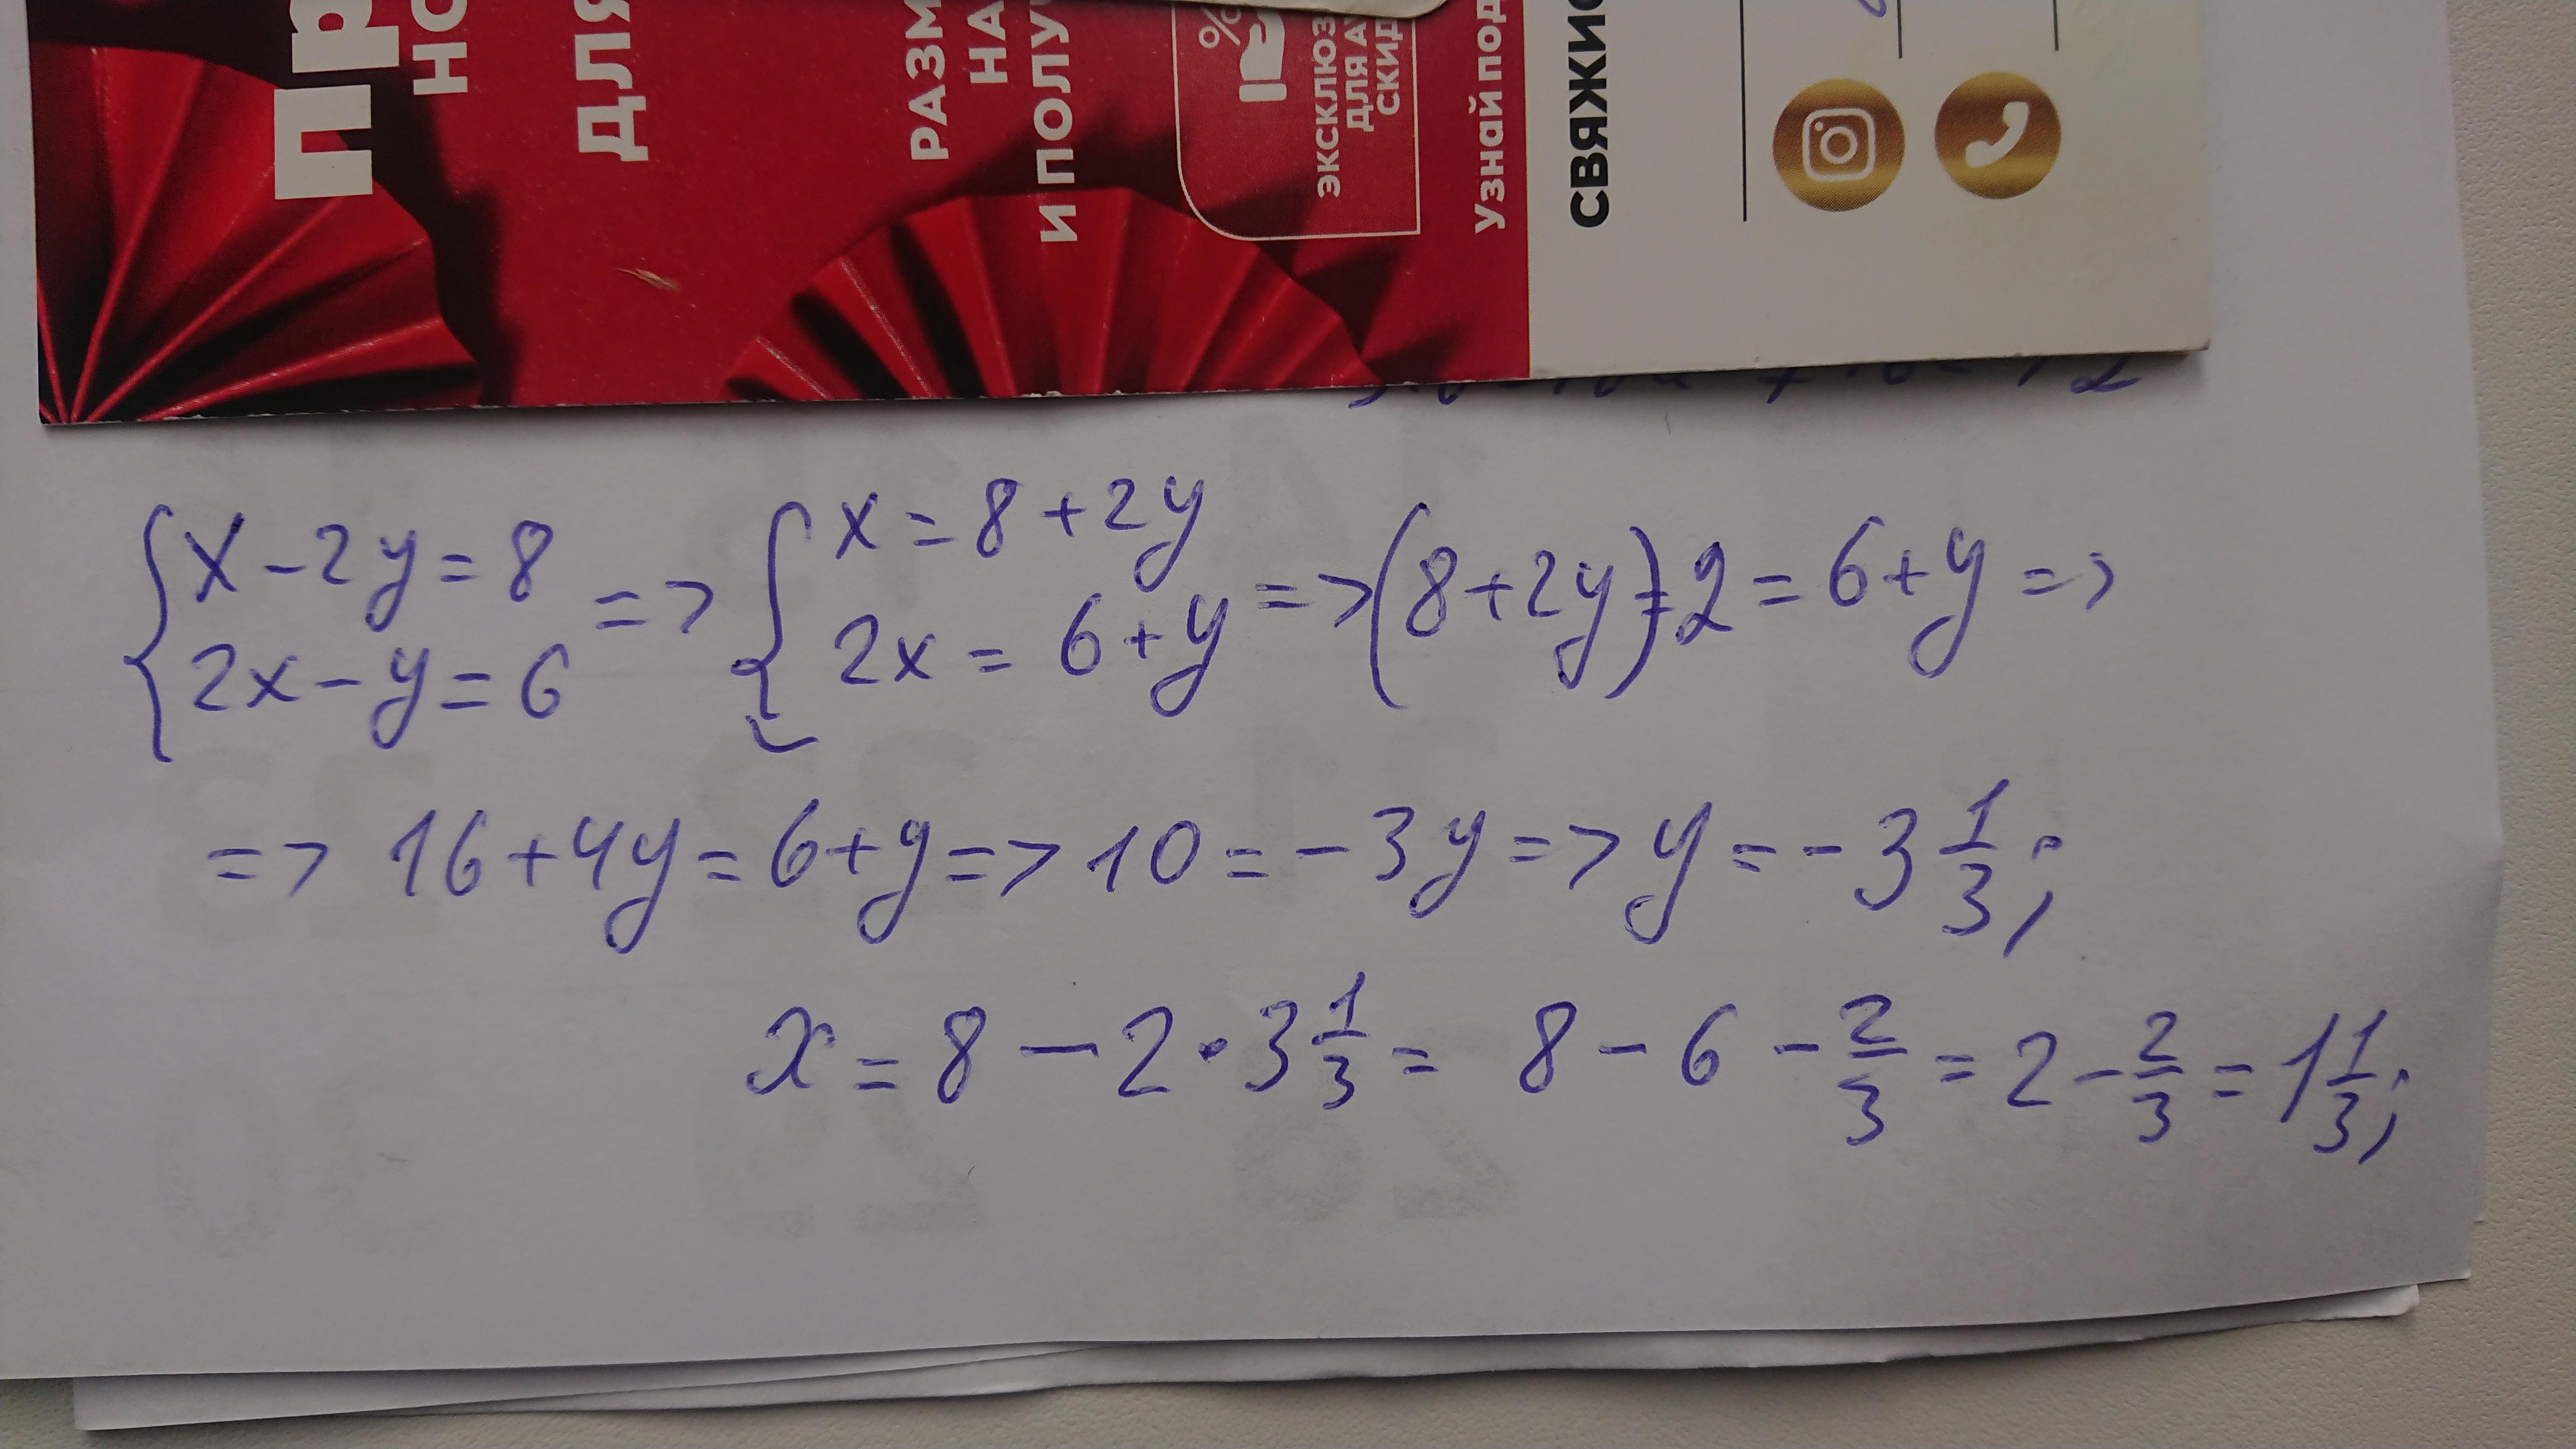 пр
НО
ДЛЯ
РАЗМ
НА
И ПОЛУ
%
ЭКСКЛЮЗ
ДЛЯ А
СКИД
Узнай под
СВЯЖИ
{ x - 2y = 8 => { x = 8 + 2y => (8 + 2y) · 2 = 6 + y =>
2x - y = 6 2x = 6 + y
=> 16 + 4y = 6 + y => 10 = -3y => y = -3 1/3;
x = 8 - 2 · 3 1/3 = 8 - 6 - 2/3 = 2 - 2/3 = 1 1/3;